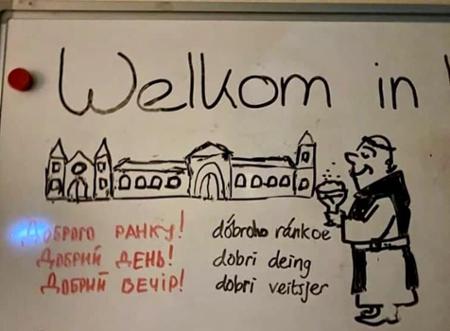 Welkom in
Доброго ранку! dóbroho ránkoe
Добрий день! dobri deing
Добрий вечір! dobri veitsjer